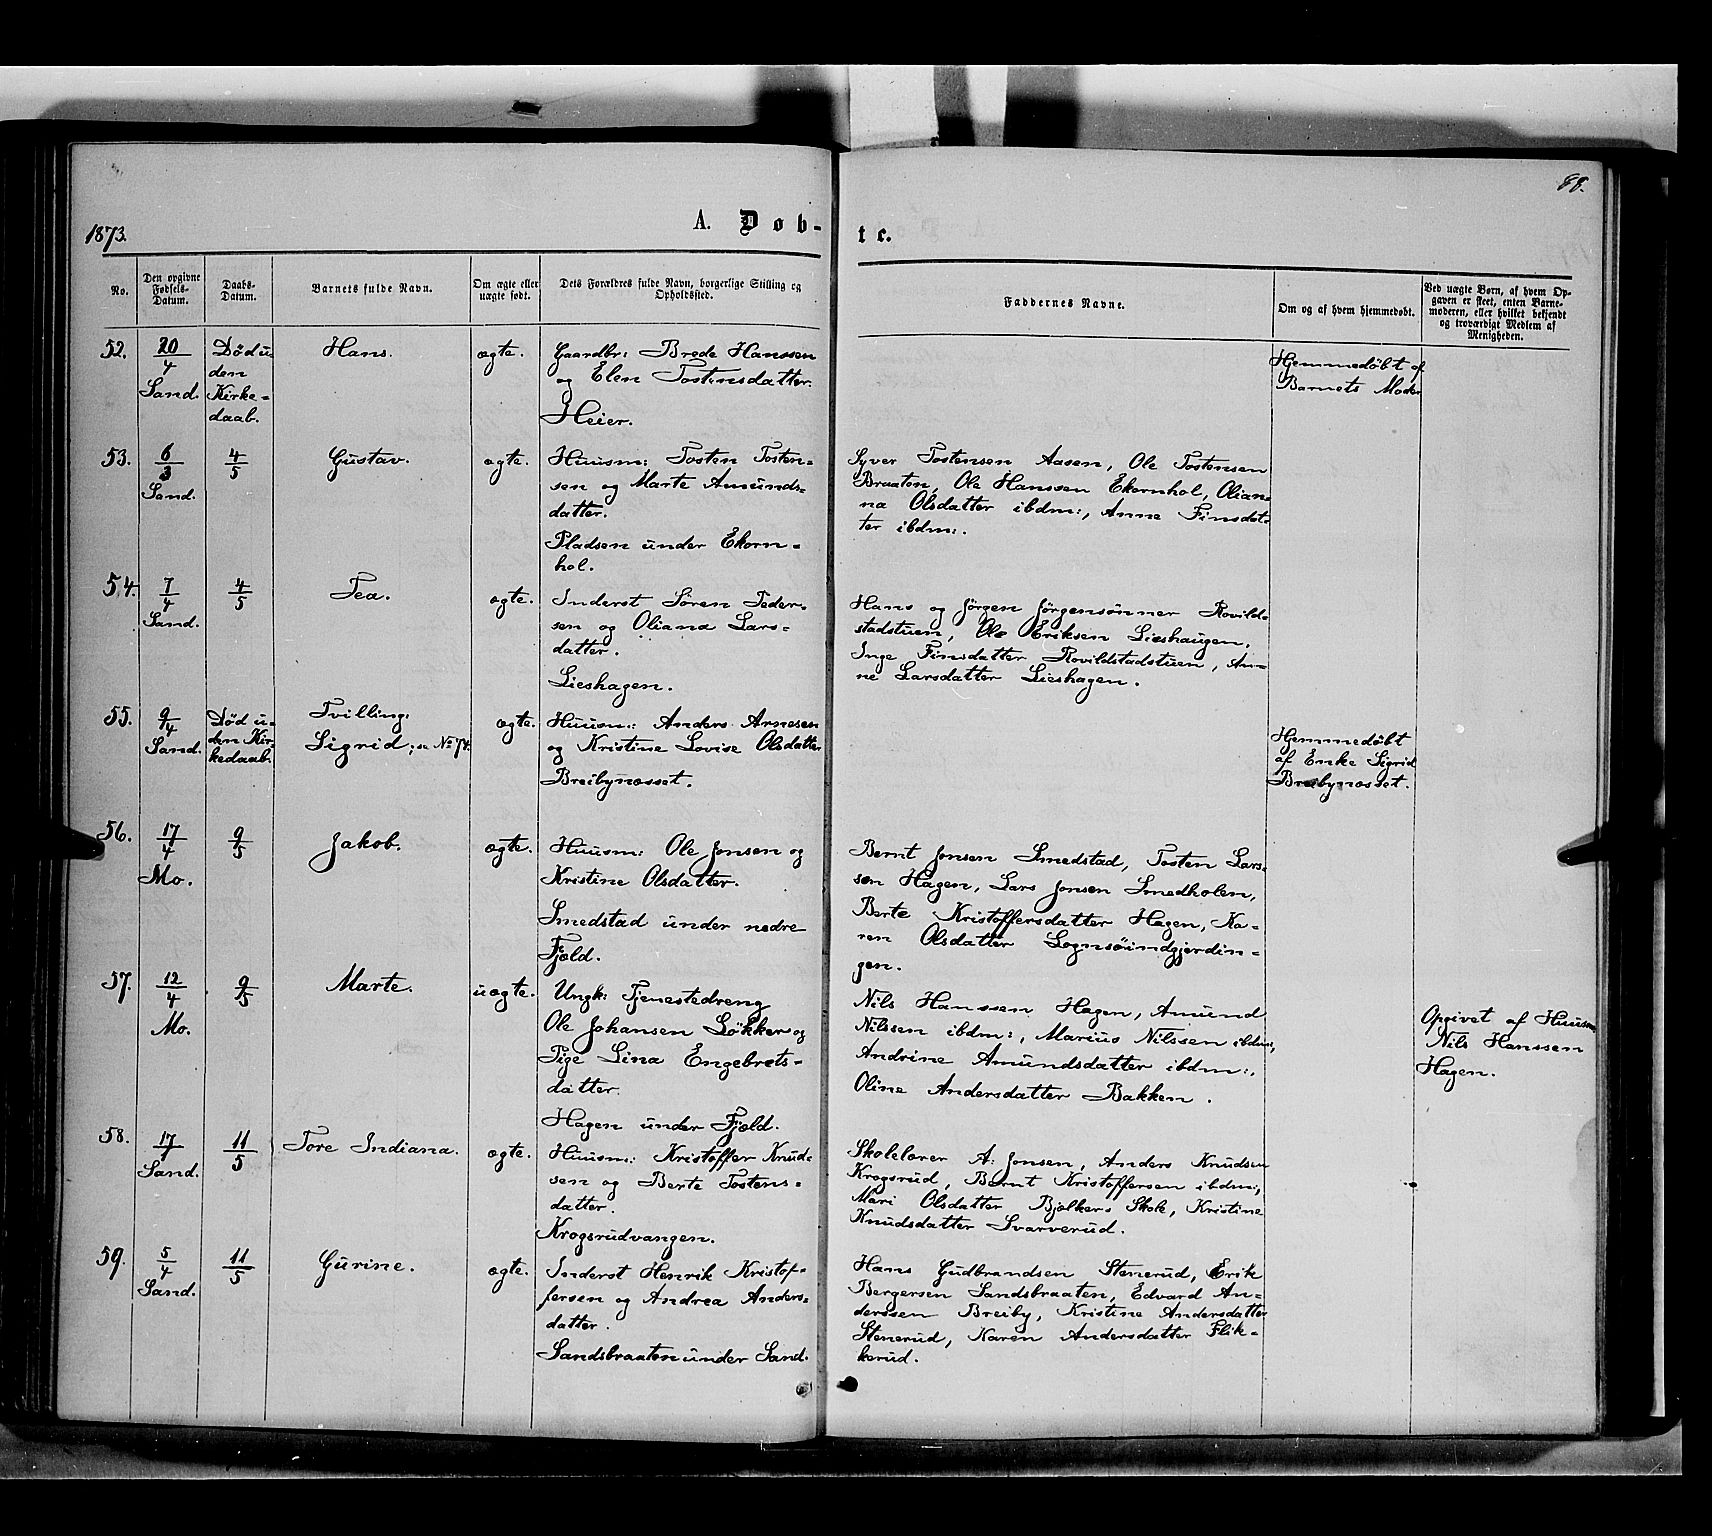 88.
1873.
A. Døb-
te.
No.
Den opgivne Fødsels-Datum.
Daabs-Datum.
Barnets fulde Navn.
Om ægte eller uægte født.
Dets Forældres fulde Navn, borgerlige Stilling og Opholdssted.
Faddernes Navne.
Om og af hvem hjemmedøbt.
Ved uægte Børn, af hvem Opgaven er skeet, enten Barnemoderen, eller hvilket bekjendt og troværdigt Medlem af Menigheden.
52.
20/4
Sand.
Død u-
den
Kirke-
daab.
Hans.
ægte.
Gaardbr: Brede Hanssen
og Elen Tostensdatter.
Heier.
Hjemmedøbt af
Barnets Moder
53.
6/3
Sand.
4/5
Gustav.
ægte.
Huusm: Tosten Tosten-
sen og Marte Amunds-
datter.
Pladsen under Ekorn-
hol.
Syver Tostensen Aasen, Ole Tostensen
Braaten, Ole Hanssen Ekornhol, Olian-
na Olsdatter ibdm:, Anne Finsdat-
ter ibdm:.
54.
7/4
Sand.
4/5
Tea.
ægte.
Inderst Søren Peder-
sen og Oliana Lars-
datter.
Lieshagen.
Hans og Jørgen Jørgensønner Rovild-
stadstuen, Ole Eriksen Lieshaugen,
Inge Finsdatter Rovildstadstuen, An-
ne Larsdatter Lieshagen.
55.
9/4
Sand.
Død u-
den Kir-
kedaab.
Tvilling:
Sigrid; se No 74.
ægte.
Huusm: Anders Arnesen
og Kristine Lovise Olsdatter
Breibynæsset.
Hjemmedøbt
af Enke Sigrid
Breibynæsset.
56.
17/4
Mo.
9/5
Jakob.
ægte.
Huusm: Ole Jonsen og
Kristine Olsdatter.
Smedstad under nedre
Fjeld.
Bernt Jonsen Smedstad, Tosten Lars-
sen Hagen, Lars Jonsen Smedholen,
Berte Kristoffersdatter Hagen, Ka-
ren Olsdatter Lognsöindgjerdin-
gen.
57.
12/4
Mo.
9/5
Marte.
uægte.
Ungk: Tjenestedreng
Ole Johansen Løkker og
Pige Lina Engebrets-
datter.
Hagen under Fjeld.
Nils Hanssen Hagen, Amund
Nilssen ibdm:, Marius Nilssen ibdm:,
Andrine Amundsdatter ibdm:,
Oline Andersdatter Bakken.
Opgivet af Huusm
Nils Hanssen
Hagen.
58.
17/1
Sand.
11/5
Tore Indiana.
ægte.
Huusm: Kristoffer Knud-
sen og Berte Tostens-
datter.
Krogsrudvangen.
Skolelærer A: Jonsen, Anders Knudsen
Krogsrud, Bernt Kristoffersen ibdm:,
Mari Olsdatter Bjølkers Skole, Kristine
Knudsdatter Svarverud.
59.
5/4
Sand.
11/5
Gurine.
ægte.
Inderst Henrik Kristof-
fersen og Andrea Anders-
datter.
Sandsbraaten under Sand.
Hans Gudbrandsen Stenerud, Erik
Bergersen Sandsbraaten, Edvard An-
derssen Breiby, Kristine Andersdatter
Stenerud, Karen Andersdatter Flik-
kerud.